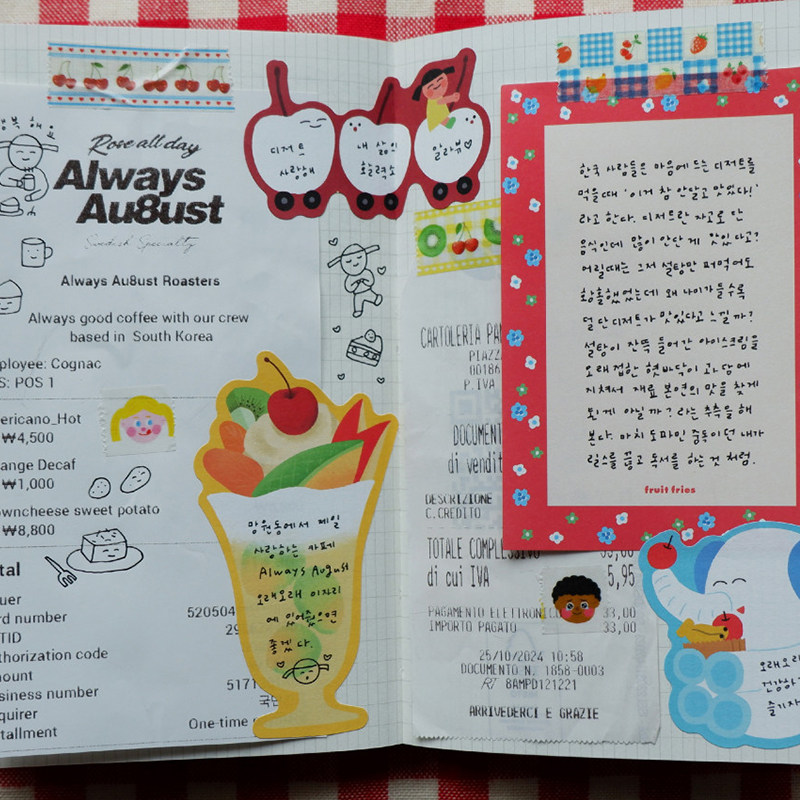 행복 해요
Rose all day
Always
Au8ust
Swedish Specialty
Always Au8ust Roasters
Always good coffee with our crew
based in South Korea
ployee: Cognac
S: POS 1
ericano_Hot
₩4,500
ange Decaf
₩1,000
owncheese sweet potato
₩8,800
tal
uer
rd number
520504
TID
29
thorization code
nount
siness number
5171
quirer
국민
tallment
One-time
디저트
사랑해
내 삶의
활력소
알라뷰♡
망원동에서 제일
사랑하는 카페
Always August
오래오래 이자리
에 있어줬으면
좋겠다.
CARTOLERIA PAN
PIAZZ
00186
P.IVA
DOCUMENT
di vendit
DESCRIZIONE
C.CREDITO
TOTALE COMPLESSIVO
33,00
di cui IVA
5,95
PAGAMENTO ELETTRONICO
33,00
IMPORTO PAGATO
33,00
25/10/2024 10:58
DOCUMENTO N. 1858-0003
RT 8AMPD121221
ARRIVEDERCI E GRAZIE
한국 사람들은 마음에 드는 디저트를
먹을때 '이거 참 안달고 맛있다!'
라고 한다. 디저트란 자고로 단
음식인데 많이 안단 게 맛있다고?
어릴때는 그저 설탕만 퍼먹여도
황홀했었는데 왜 나이가 들수록
덜 단 디저트가 맛있다고 느낄까?
설탕이 잔뜩 들어간 아이스크림을
오래 접한 혓바닥이 고단함에
지쳐서 재료 본연의 맛을 찾게
된 게 아닐까? 라는 추측을 해
본다. 마치 도파민 중독이던 내가
릴스를 끊고 독서를 하는 것 처럼.
fruit fries
오래오래
건강하게
즐기자